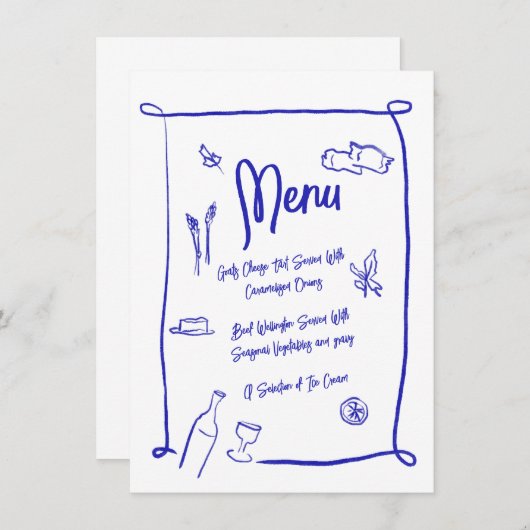 Menu
Goats Cheese tart Served With
Caramelized Onions
Beef Wellington Served With
Seasonal Vegetables and gravy
A Selection of Ice Cream